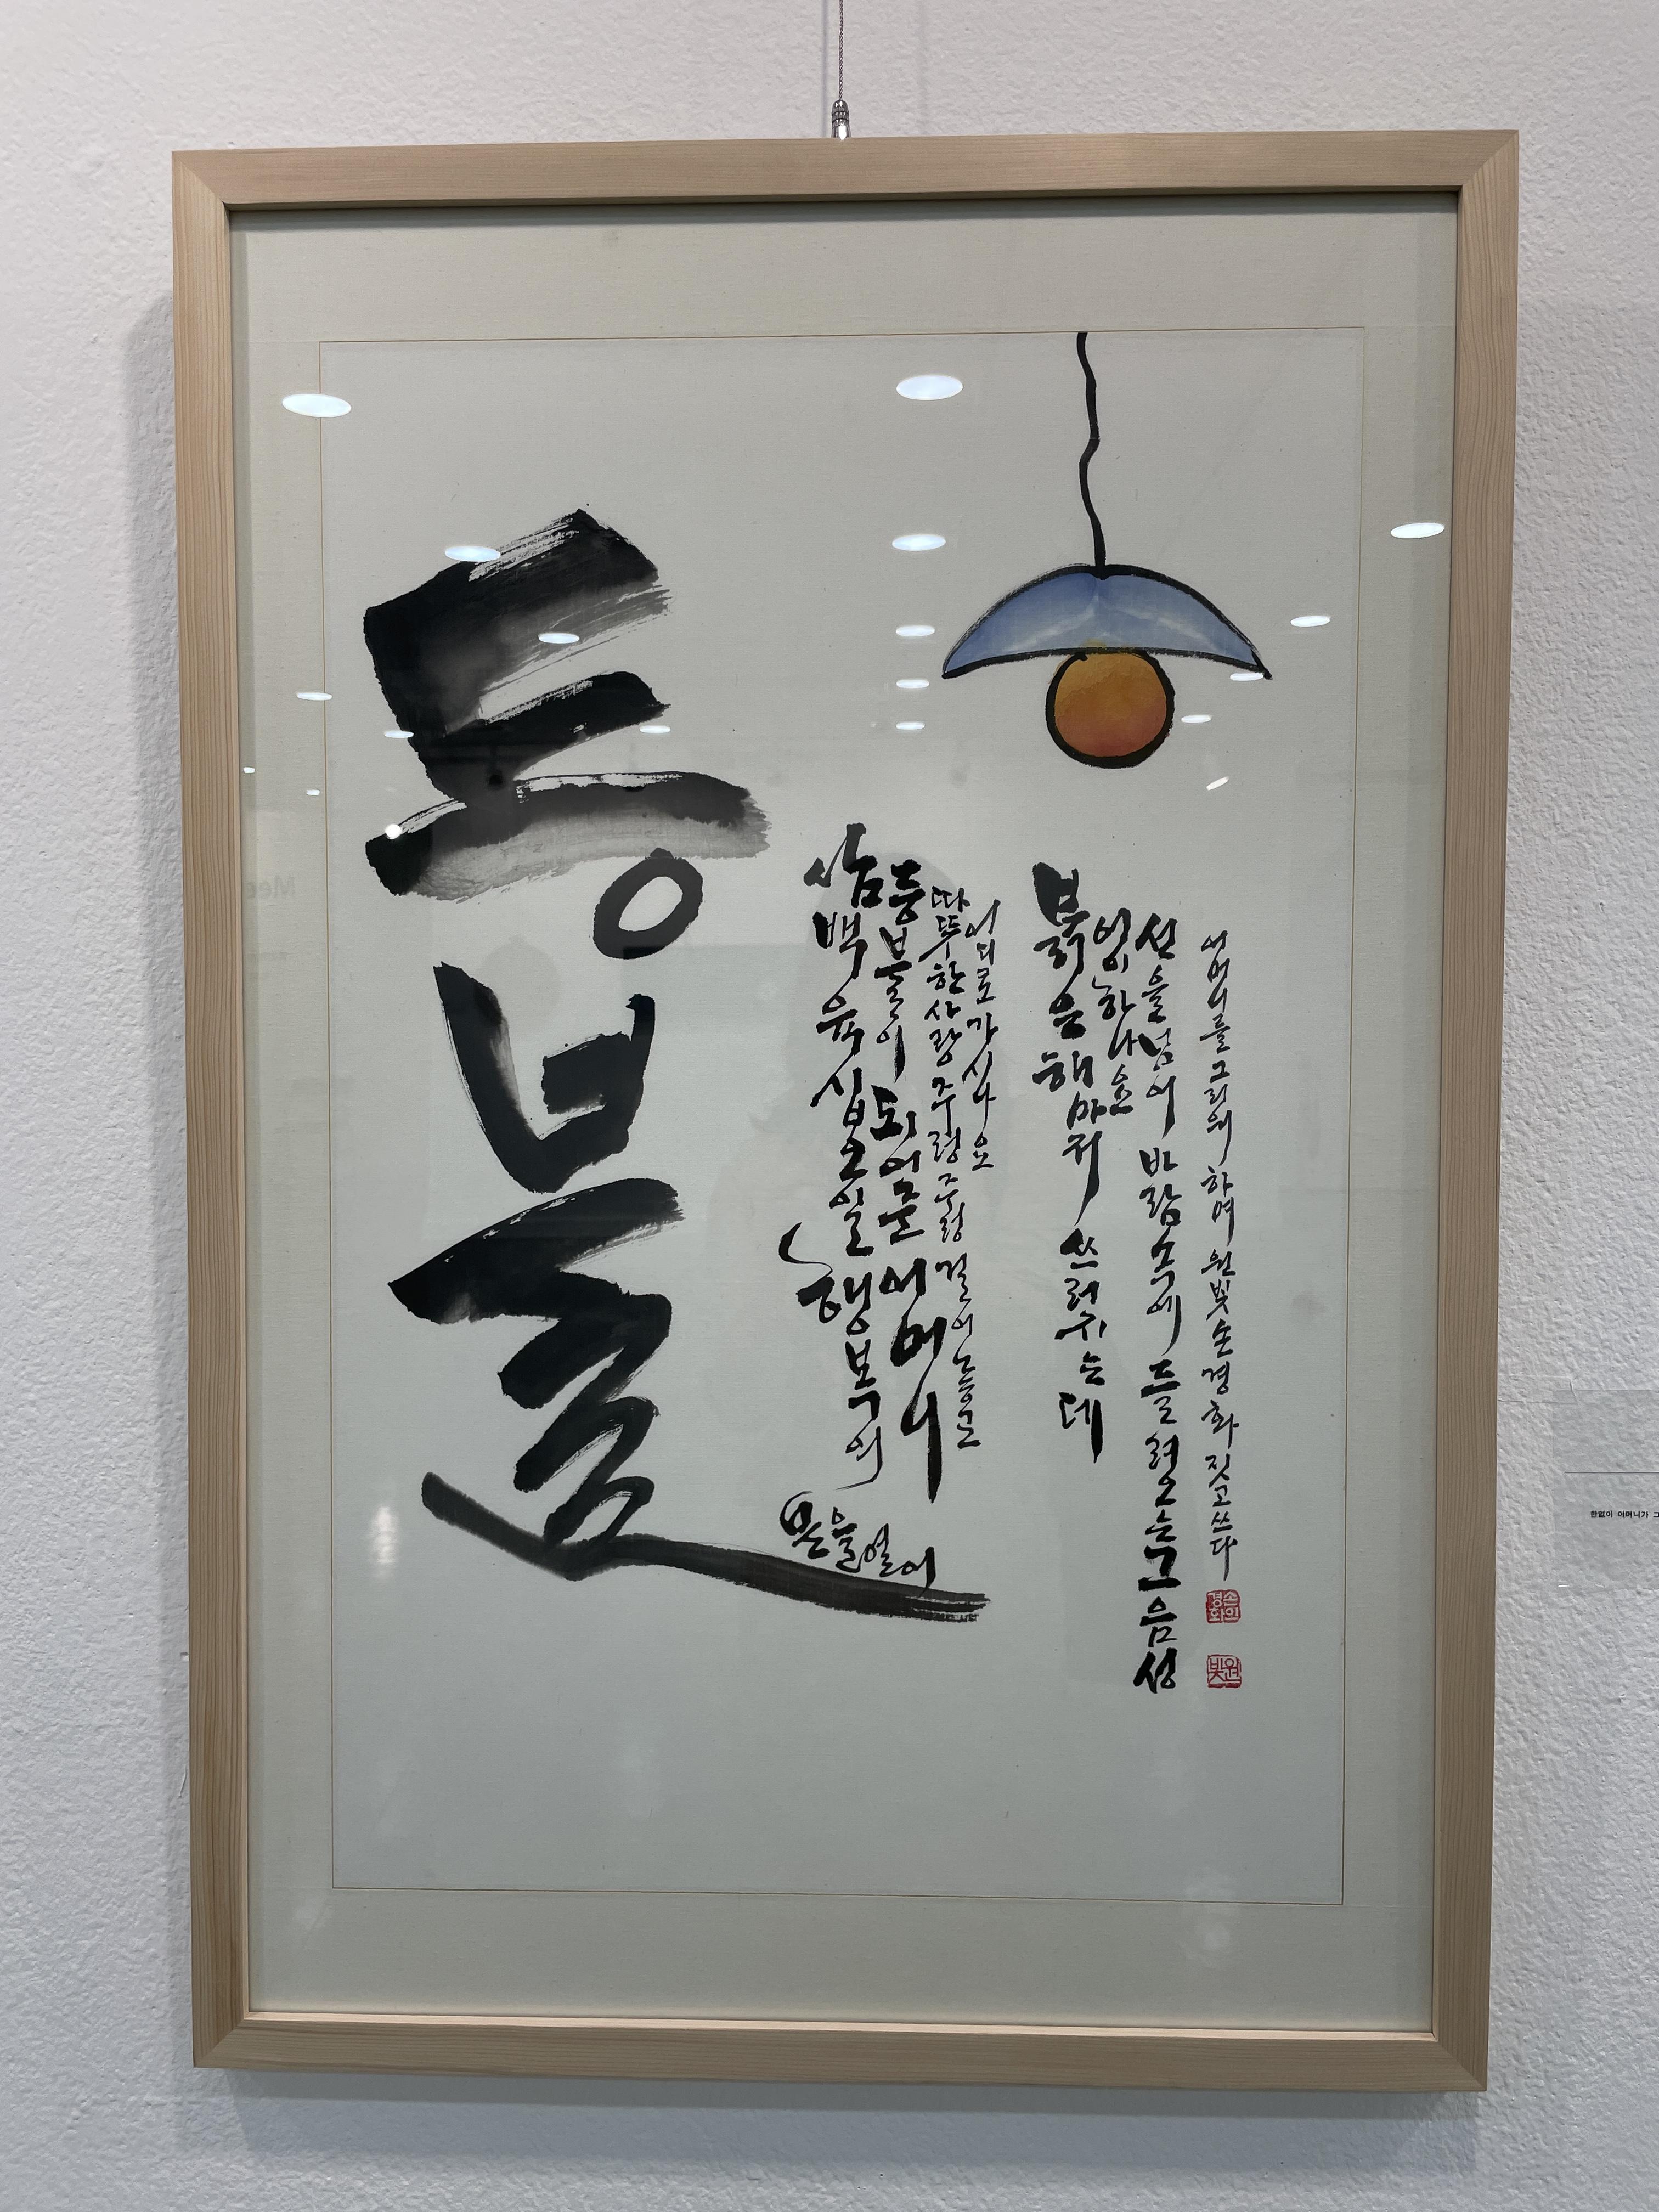 등불
삼백육십오일 행복의
문을열어
등불이 되어준 어머니
따뜻한사랑 주렁주렁 걸어놓고
어디로가시나요
붉은해마저 쓰러지는데
어이하나요
산을넘어 바람속에 들려오는그음성
어머니를그리워하며 원빛손경화 짓고쓰다
한없이 어머니가 그